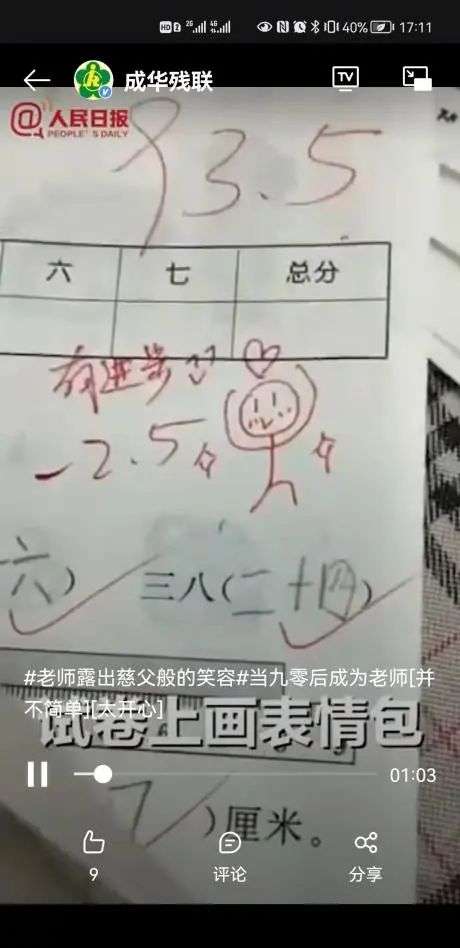 HD 2 2G 4G 40% 17:11
成华残联
TV
@人民日报
PEOPLE'S DAILY
93.5
六 七 总分
有进步
-2.5
六) 三八(二十四)
#老师露出慈父般的笑容#当九零后成为老师[并
不简单][太开心]
试卷上画表情包
01:03
7 )厘米。
9 评论 分享